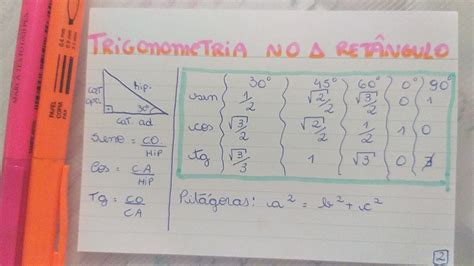 TRIGONOMETRIA NO Δ RETÂNGULO
cat. opo.
hip.
30°
cat. ad
Seno = CO/HIP
Cos = CA/HIP
Tg = CO/CA
30° 45° 60° 0° 90°
sen 1/2 √2/2 √3/2 0 1
cos √3/2 √2/2 1/2 1 0
tg √3/3 1 √3 0 ∄
Pitágoras: a² = b² + c²
2